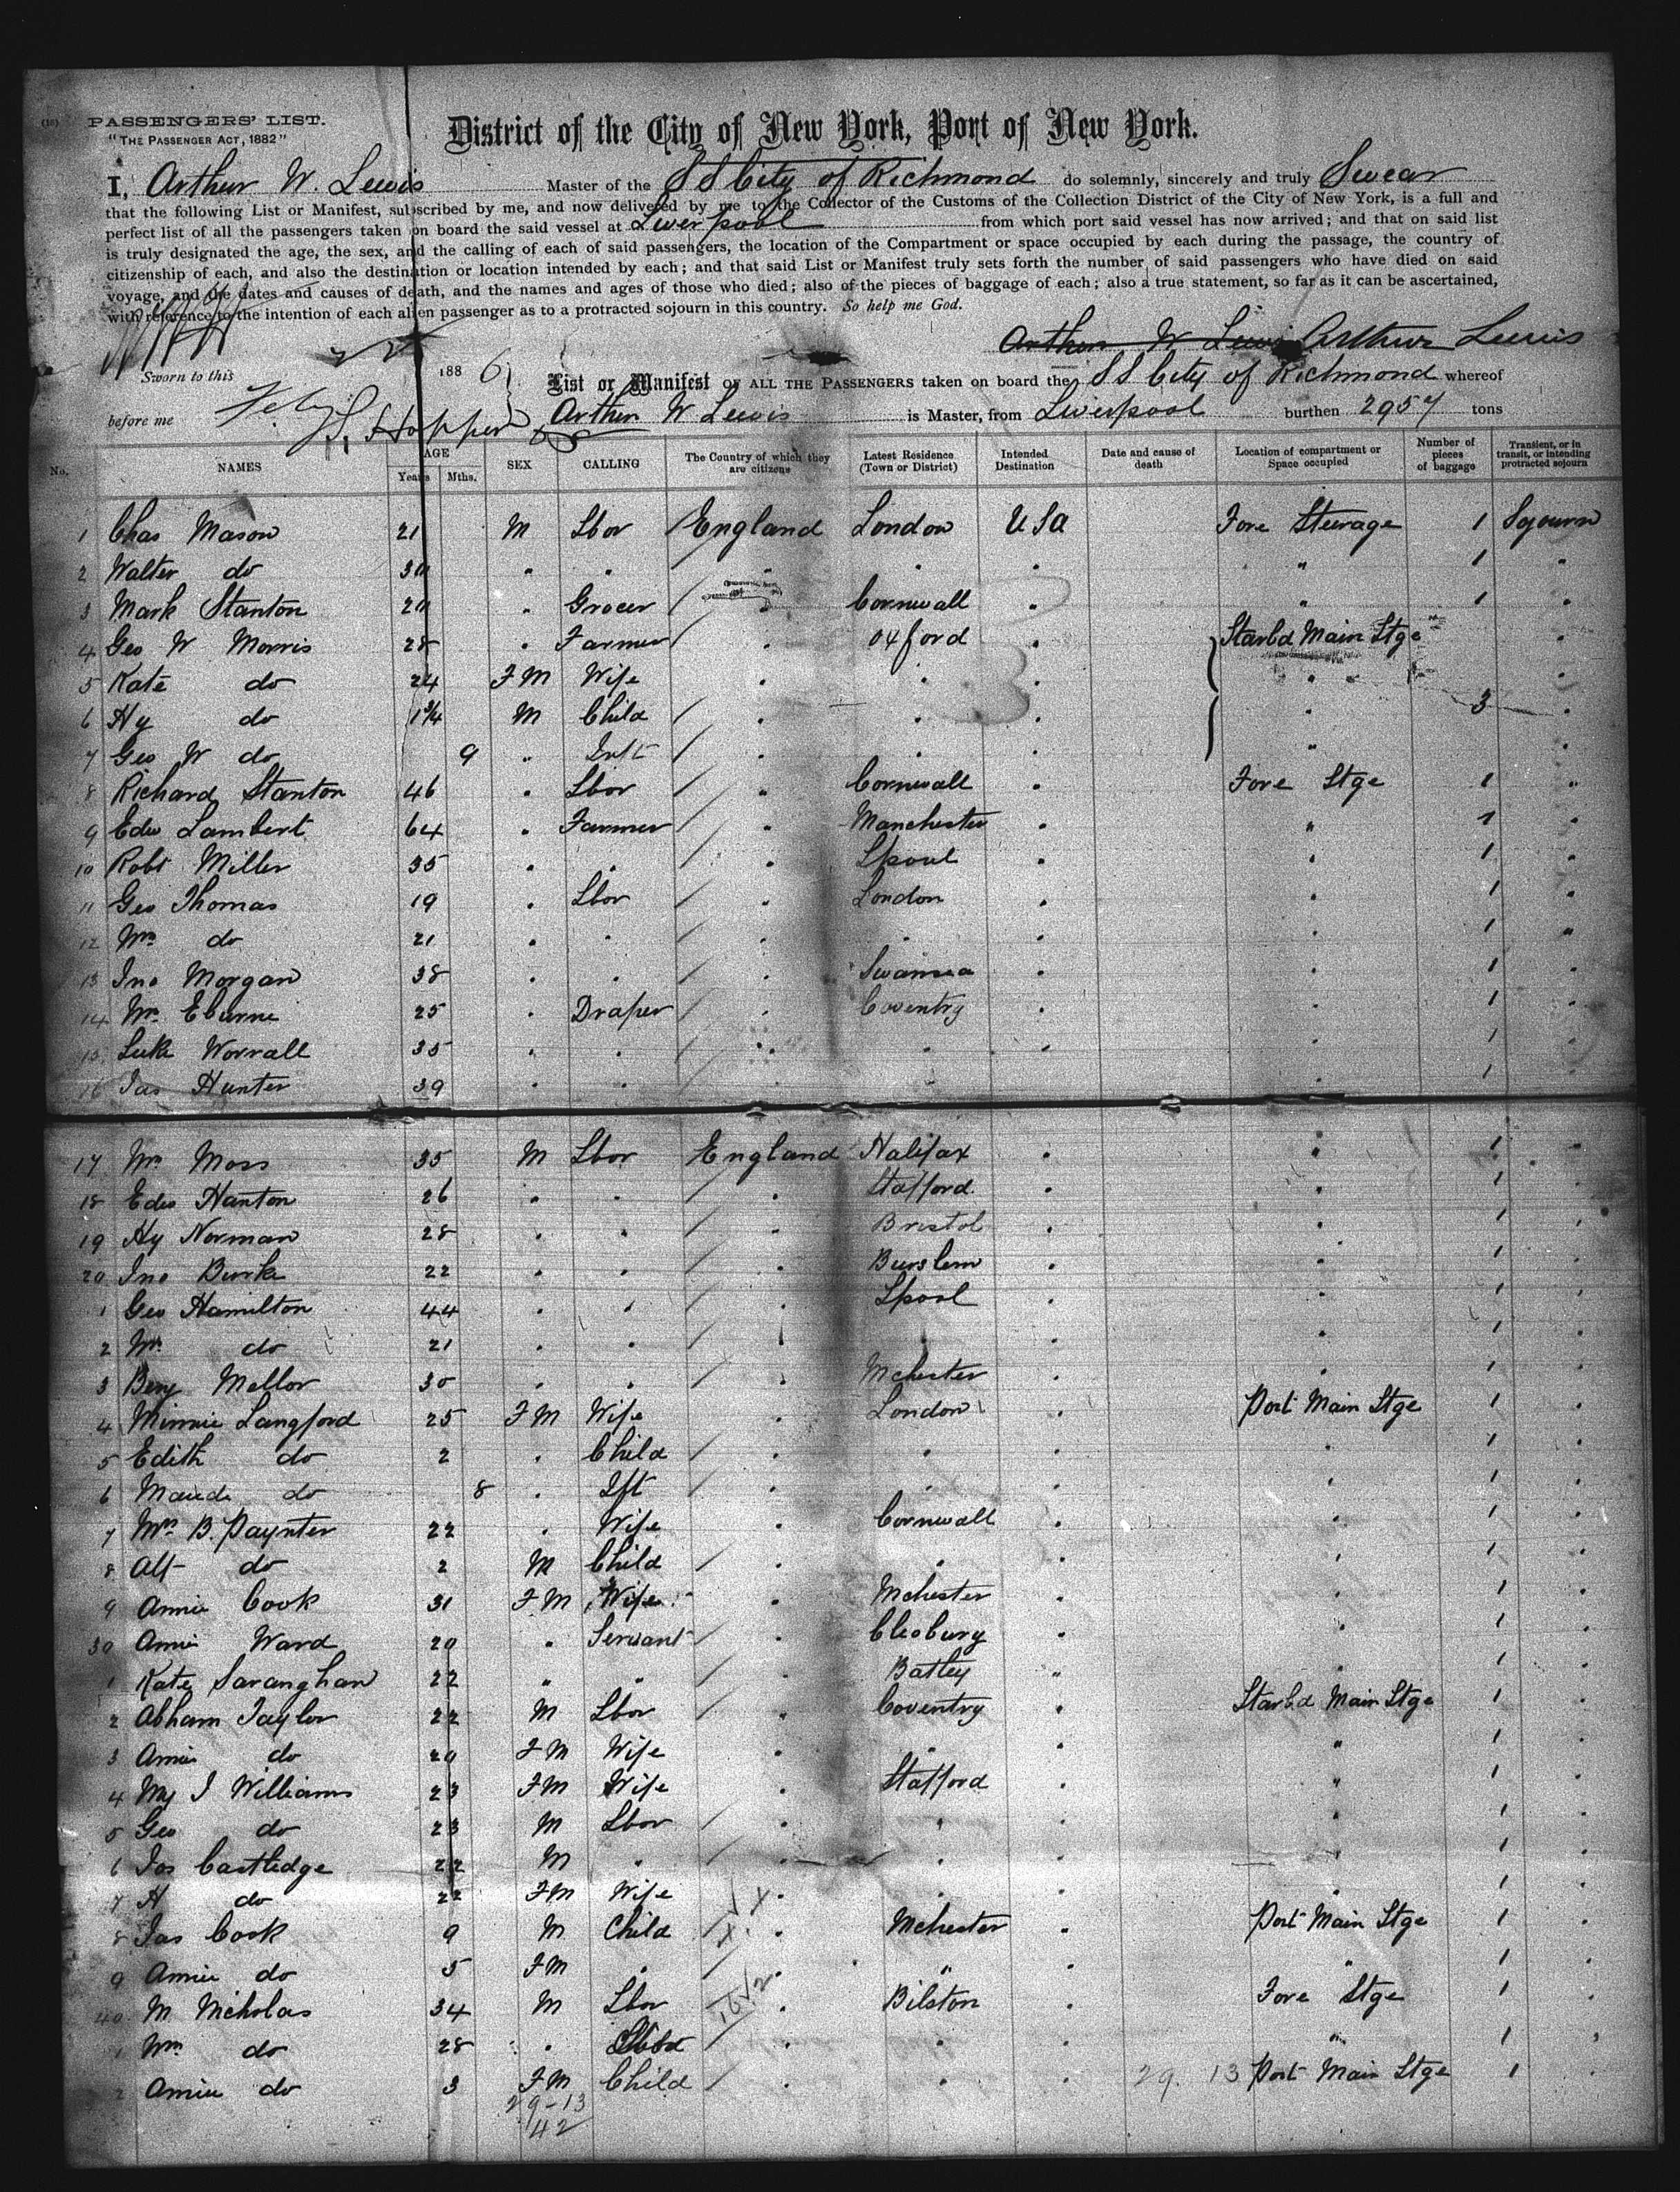 (18) PASSENGERS' LIST.
"THE PASSENGER ACT, 1882"
District of the City of New York, Port of New York.
I, Arthur W. Lewis Master of the S S City of Richmond do solemnly, sincerely and truly Swear
that the following List or Manifest, subscribed by me, and now delivered by me to the Collector of the Customs of the Collection District of the City of New York, is a full and
perfect list of all the passengers taken on board the said vessel at Liverpool from which port said vessel has now arrived; and that on said list
is truly designated the age, the sex, and the calling of each of said passengers, the location of the Compartment or space occupied by each during the passage, the country of
citizenship of each, and also the destination or location intended by each; and that said List or Manifest truly sets forth the number of said passengers who have died on said
voyage, and the dates and causes of death, and the names and ages of those who died; also of the pieces of baggage of each; also a true statement, so far as it can be ascertained,
with reference to the intention of each alien passenger as to a protracted sojourn in this country. So help me God.
Arthur W Lewis Arthur Lewis
Sworn to this 22 Feby 1886
before me Hopper
List or Manifest OF ALL THE PASSENGERS taken on board the S S City of Richmond whereof
Arthur W Lewis is Master, from Liverpool burthen 2957 tons
No. NAMES AGE Years Mths. SEX CALLING The Country of which they are citizens Latest Residence (Town or District) Intended Destination Date and cause of death Location of compartment or Space occupied Number of pieces of baggage Transient, or in transit, or intending protracted sojourn
1 Chas Mason 21 M Lbor England London USA Fore Steerage 1 Sojourn
2 Walter do 30 " " " " " " 1 "
3 Mark Stanton 20 " Grocer " Cornwall " " 1 "
4 Geo W Morris 28 " Farmer " Oxford " Starbd Main Stge "
5 Kate do 24 F M Wife " " " " "
6 Hy do 1 3/4 M Child " " " " 3 "
7 Geo W do 9 " Inft " " " " "
8 Richard Stanton 46 " Lbor " Cornwall " Fore Stge 1 "
9 Edw Lambert 64 " Farmer " Manchester " " 1 "
10 Robt Miller 35 " " " Lpool " " 1 "
11 Geo Thomas 19 " Lbor " London " " 1 "
12 Wm do 21 " " " " " " 1 "
13 Jno Morgan 38 " " " Swansea " " 1 "
14 Wm Eburne 25 " Draper " Coventry " " 1 "
15 Luke Worrall 35 " " " " " " 1 "
16 Jas Hunter 39 " " " 1
17 Wm Moss 35 M Lbor England Halifax " " 1 "
18 Edw Hanton 26 " " " Stafford " " 1 "
19 Hy Norman 28 " " " Bristol " " 1 "
20 Jno Burke 22 " " " Burslem " " 1 "
1 Geo Hamilton 44 " " " Lpool " " 1 "
2 Wm do 21 " " " " " " 1 "
3 Benj Mellor 30 " " " Mchester " " 1 "
4 Minnie Langford 25 F M Wife " London " Port Main Stge 1 "
5 Edith do 2 " Child " " " 1 "
6 Maude do 8 " Ift " " " " 1 "
7 Mrs B. Paynter 22 " Wife " Cornwall " " 1 "
8 Alf do 2 M Child " " " " 1 "
9 Annie Cook 31 F M Wife " Mchester " " 1 "
30 Annie Ward 20 " Servant " Cleobury " " 1 "
1 Kate 22 " " " Batley " " 1 "
2 Abham Taylor 22 M Lbor " Coventry " Starbd Main Stge 1 "
3 Annie do 20 F M Wife " " " " 1 "
4 My J Williams 23 F M Wife " Stafford " " 1 "
5 Geo do 23 M Lbor " " " " 1 "
6 Jos Castledge 22 M " " " " " 1 "
7 H do 22 F M Wife " " " " 1 "
8 Jas Cook 9 M Child " Mchester " Port Main Stge 1 "
9 Annie do 5 F M " " " " " 1 "
40 M Nicholas 34 M Lbor " Bilston " Fore Stge 1 "
1 Wm do 28 " Lbor " " " " 1 "
2 Annie do 3 F M Child " " " 29. 13 Port Main Stge 1 "
29-13
42